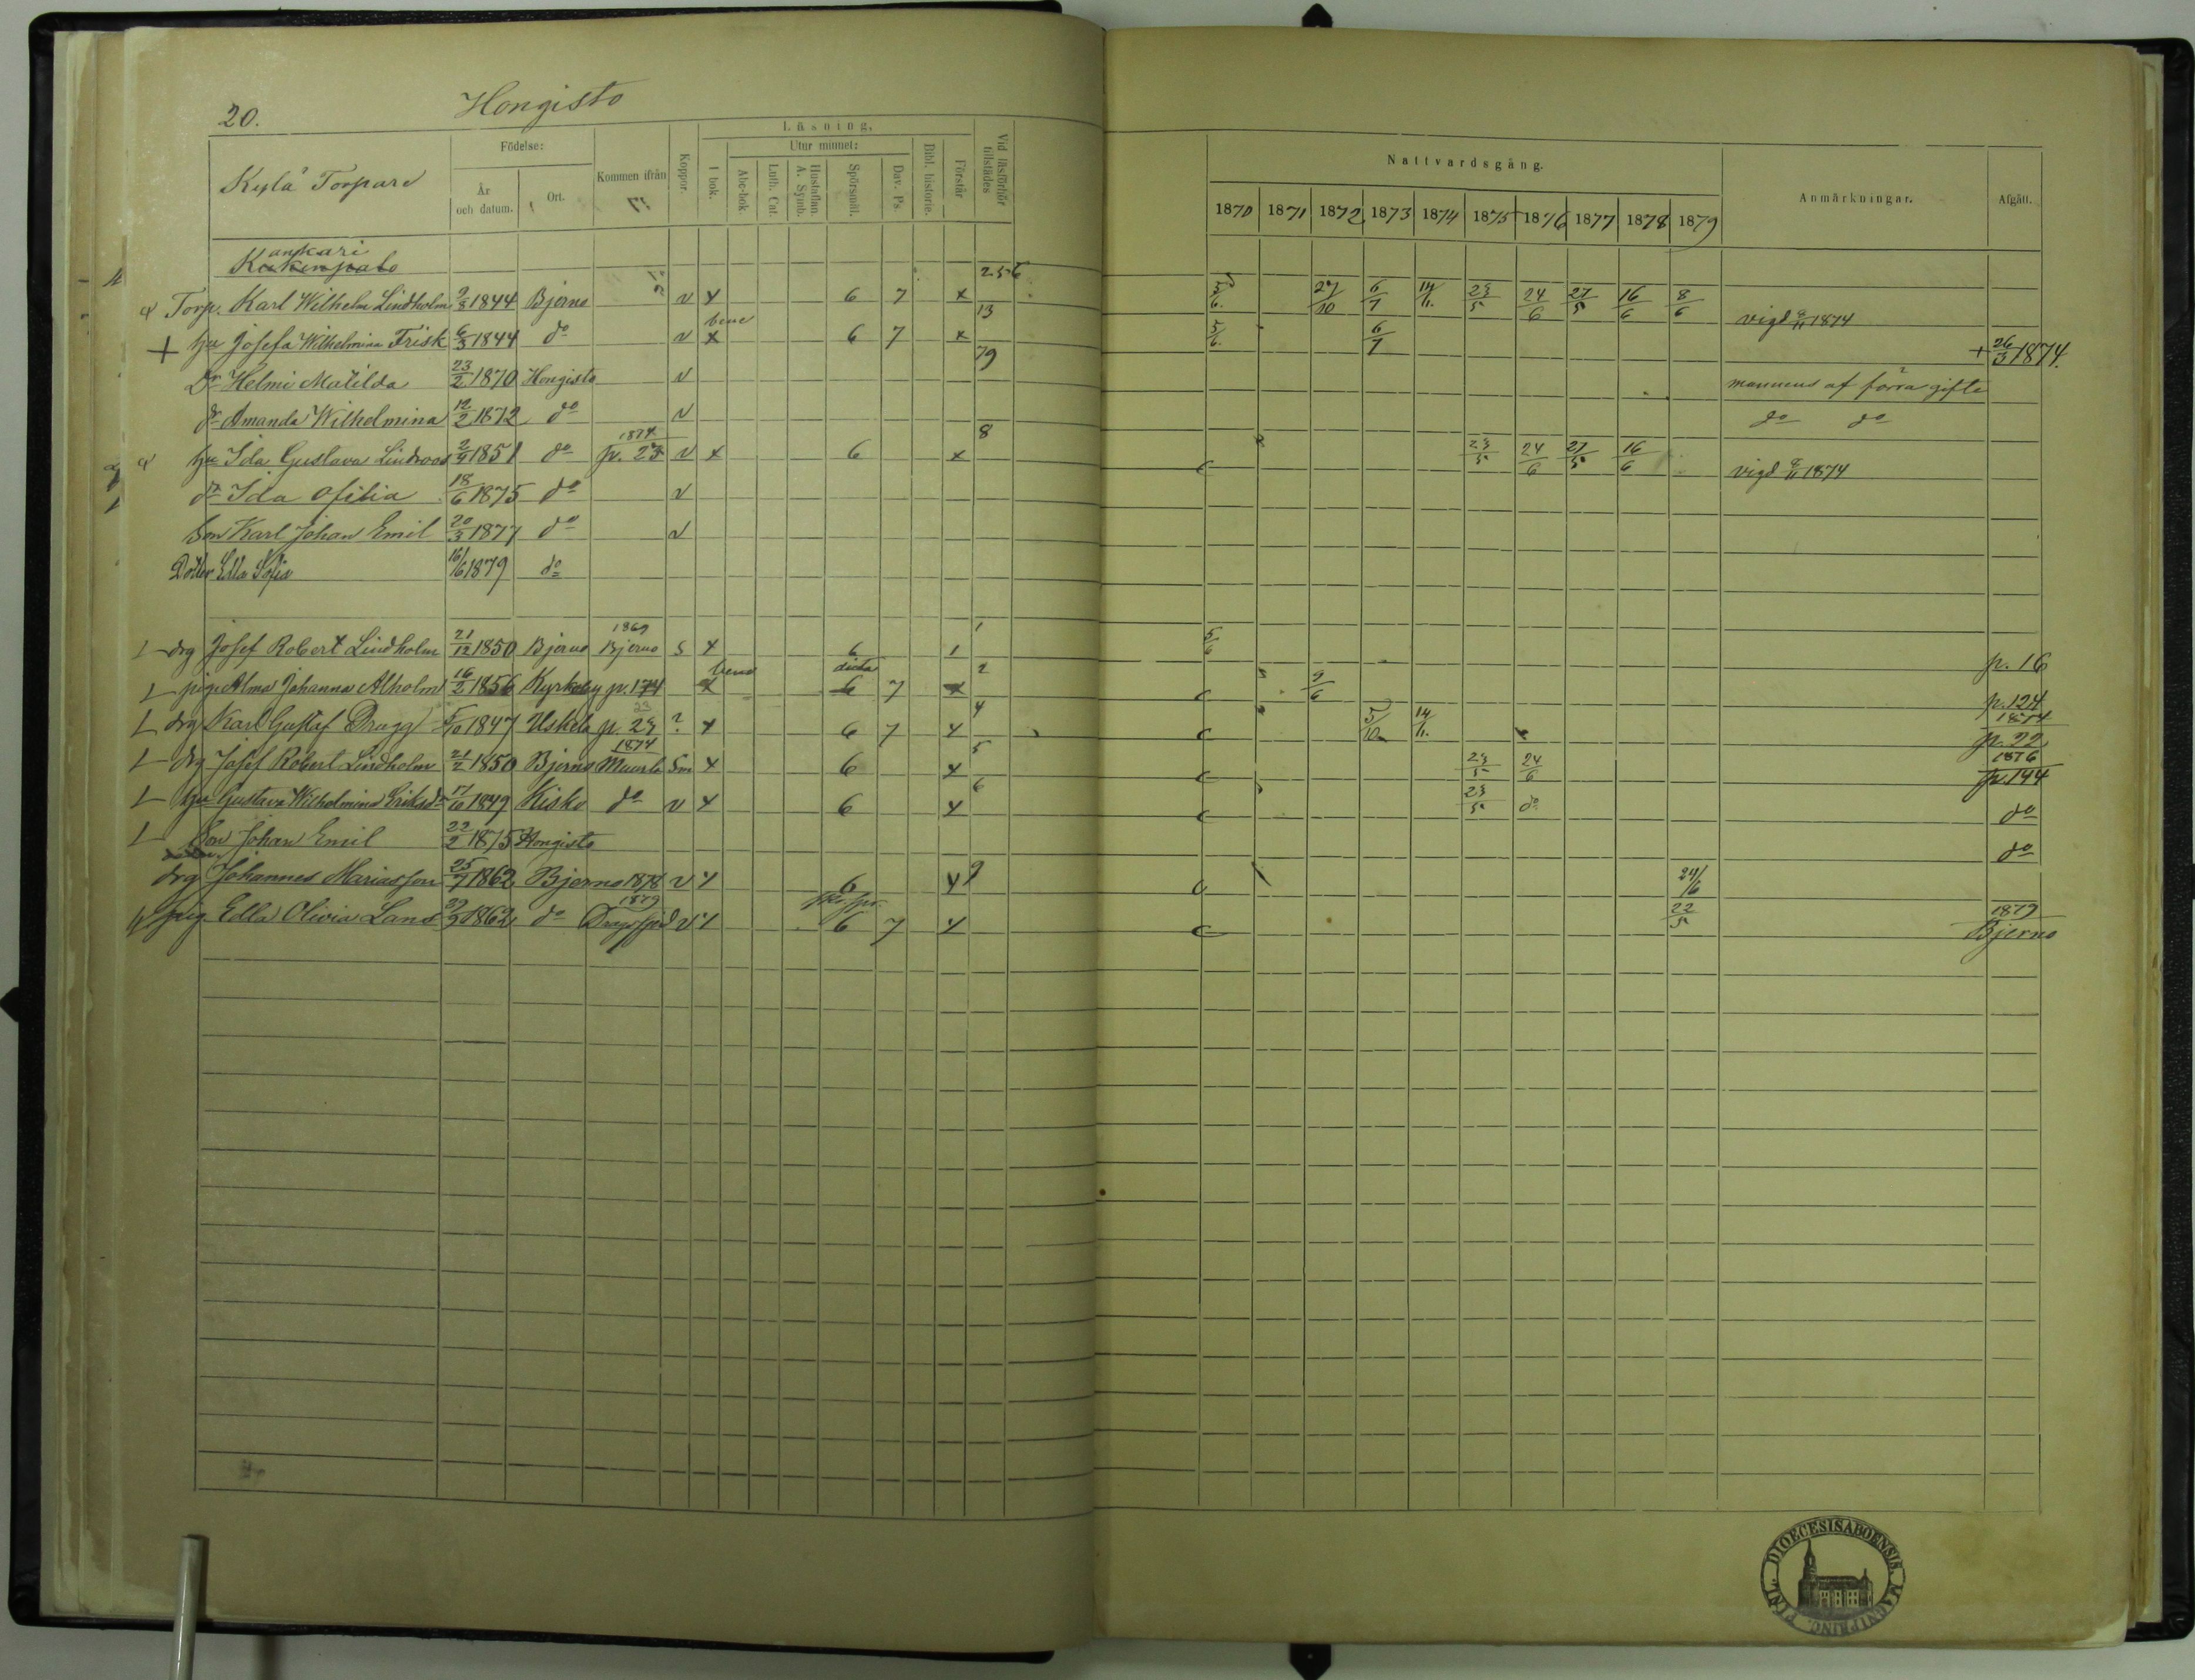 20. Hongisto
Kylä Torpare
Födelse:
År och datum.
Ort.
Kommen ifrån
Koppor.
Läsning,
I bok.
Utur minnet:
Abc-bok.
Luth. Cat.
Hustaflan. A. Symb.
Spörsmål.
Dav. Ps.
Bibl. historie.
Förstår
Vid läsförhör tillstädes
Nattvardsgång.
1870 1871 1872 1873 1874 1875 1876 1877 1878 1879
Anmärkningar.
Afgått.
Kankari
Torp. Karl Wilhelm Lindholm 9/8 1844 Bjerno v x 6 7 x 5/6. 27/10 6/7 14/11. 23/5 24/6 27/5 16/6 8/6 vigd 8/11 1874
+ hu Josefa Wilhelmina Frisk 6/3 1844 do v x bene 6 7 x 13 5/6. 6/7 + 26/3 1874.
Dr Helmi Matilda 23/2 1870 Hongisto v 79 mannens af förra gifte
dr Amanda Wilhelmina 12/2 1872 do v do do
hu Ida Gustava Lindroos 2/9 1851 do 1874 p. 23 v x 6 x 8 23/5 24/6 27/5 16/6 vigd 8/11 1874
dr Ida Ofilia 18/6 1875 do v
Son Karl Johan Emil 20/3 1877 do v
Dotter Edla Sofia 16/6 1879 do
drg Josef Robert Lindholm 21/12 1850 Bjerno 1869 Bjerno s x 6 1 1 5/6 p. 16
pig Alma Johanna Alholm 16/2 1856 Kyrkoby p. 174 x bene 6 7 x 2 9/6 p. 124
drg Karl Gustaf Drugg 5/10 1847 Uskela p. 23 ? x 6 7 x 4 5/10 14/11. 1874 p. 22
drg Josef Robert Lindholm 21/2 1850 Bjerno 1874 Muurla Sm x 6 x 5 23/5 24/6 1876 p. 144
hu Gustava Wilhelmina Eriksdr 17/10 1849 Kisko do v x 6 x 6 23/5 do do
Son Johan Emil 22/2 1875 Hongisto do
drg Johannes Mariasson 25/7 1862 Bjerno 1878 v x 6 x 9 24/6
pig Edla Olivia Lans 1862 do 1879 Dragsfjerd v x 6 7 x 22/5 1879 Bjerno
FINL. DIOECESIS ABOENSIS. MAGNI PRINC.